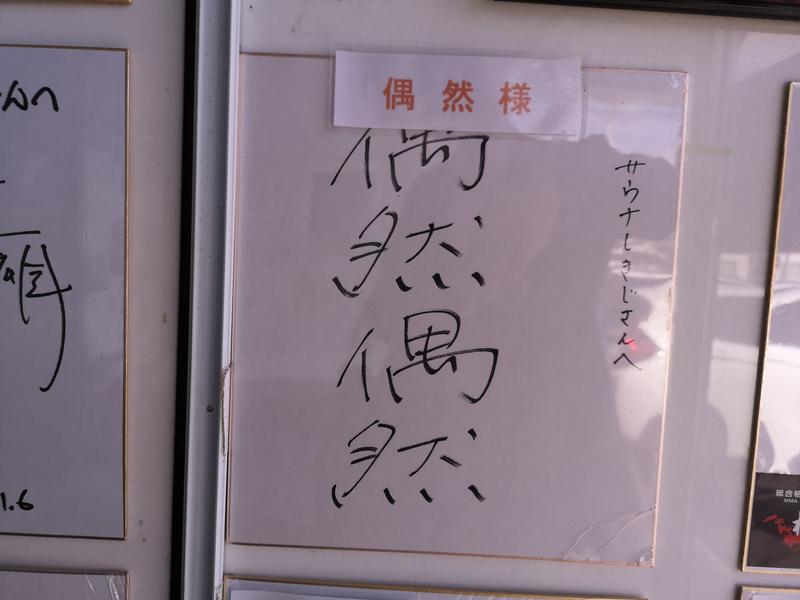 偶然様
偶然偶然
サウナしきじさんへ
んへ
雄
1.6
総合格
MMA